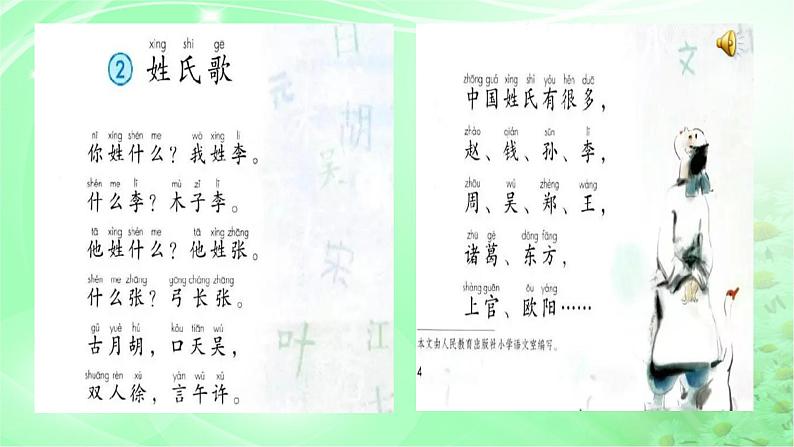 xìng shì gē
② 姓氏歌
nǐ xìng shén me wǒ xìng lǐ
你姓什么？我姓李。
shén me lǐ mù zǐ lǐ
什么李？木子李。
tā xìng shén me tā xìng zhāng
他姓什么？他姓张。
shén me zhāng gōng cháng zhāng
什么张？弓长张。
gǔ yuè hú kǒu tiān wú
古月胡，口天吴，
shuāng rén xú yán wǔ xǔ
双人徐，言午许。
元
胡
吴
宋
叶
江
zhōng guó xìng shì yǒu hěn duō
中国姓氏有很多，
zhào qián sūn lǐ
赵、钱、孙、李，
zhōu wú zhèng wáng
周、吴、郑、王，
zhū gě dōng fāng
诸葛、东方，
shàng guān ōu yáng
上官、欧阳……
本文由人民教育出版社小学语文室编写。
4
文